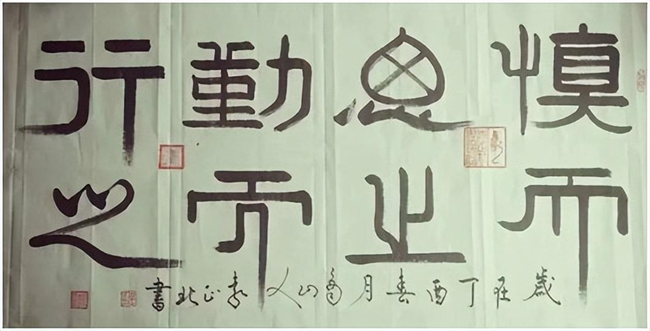 慎而
思之
勤而
行之
歲在丁酉春月山人正北書